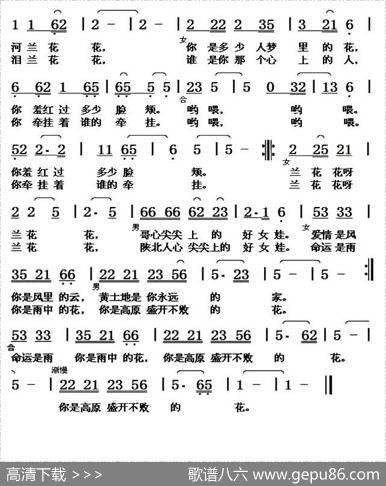 1 1 62 | 2 - | 2 - | 2 2 2 35 | 3 21 6 |
女
河兰 花 花, 你 是多少 人梦 里 的 花,
泪兰 花 花, 谁 是你 那 个心 上 的 人,
6 62 1 65 | 65 5 - | 32 6 - | 32 6 |
合
你 羞红 过 多少 脸 颊。 哟 喂, 哟 喂
你 牵挂 着 谁的 牵 挂。 哟 喂, 哟 喂
52 2·2 | 11 65 | 6 5 | 5 - | 2 25 21 |
女
你羞 红 过 多少 脸 颊。 兰 花 花呀
你牵 挂 着 谁的 牵 挂。 兰 花 花呀
2 2 5 | 2· 5 | 66 66 62 23 | 2·1 6 | 53 33 |
男 女
兰 花 花, 哥心 尖尖 上 的 好 女 娃。 爱情 是风
兰 花 花, 陕北 人心 尖尖 上 的 好 女 娃。 命运 是雨
35 21 66 | 22 21 23 56 | 5· 23 | 5 - | 53 33
男
你是 风里 的云, 黄土 地是 你永 远 的 家。
你是 雨中 的花, 你是 高原 盛开 不败 的 花。
53 33 | 35 21 66 | 22 21 23 56 | 5· 62 | 5 -
合
命运 是雨 你是 雨中 的花, 你是 高原 盛开 不败 的 花。
渐慢
5 - | 22 21 23 56 | 5· 65 | 1 - | 1 - ‖
你是 高原 盛开 不败 的 花。
高清下载 >>> 歌谱八六 www.gepu86.com